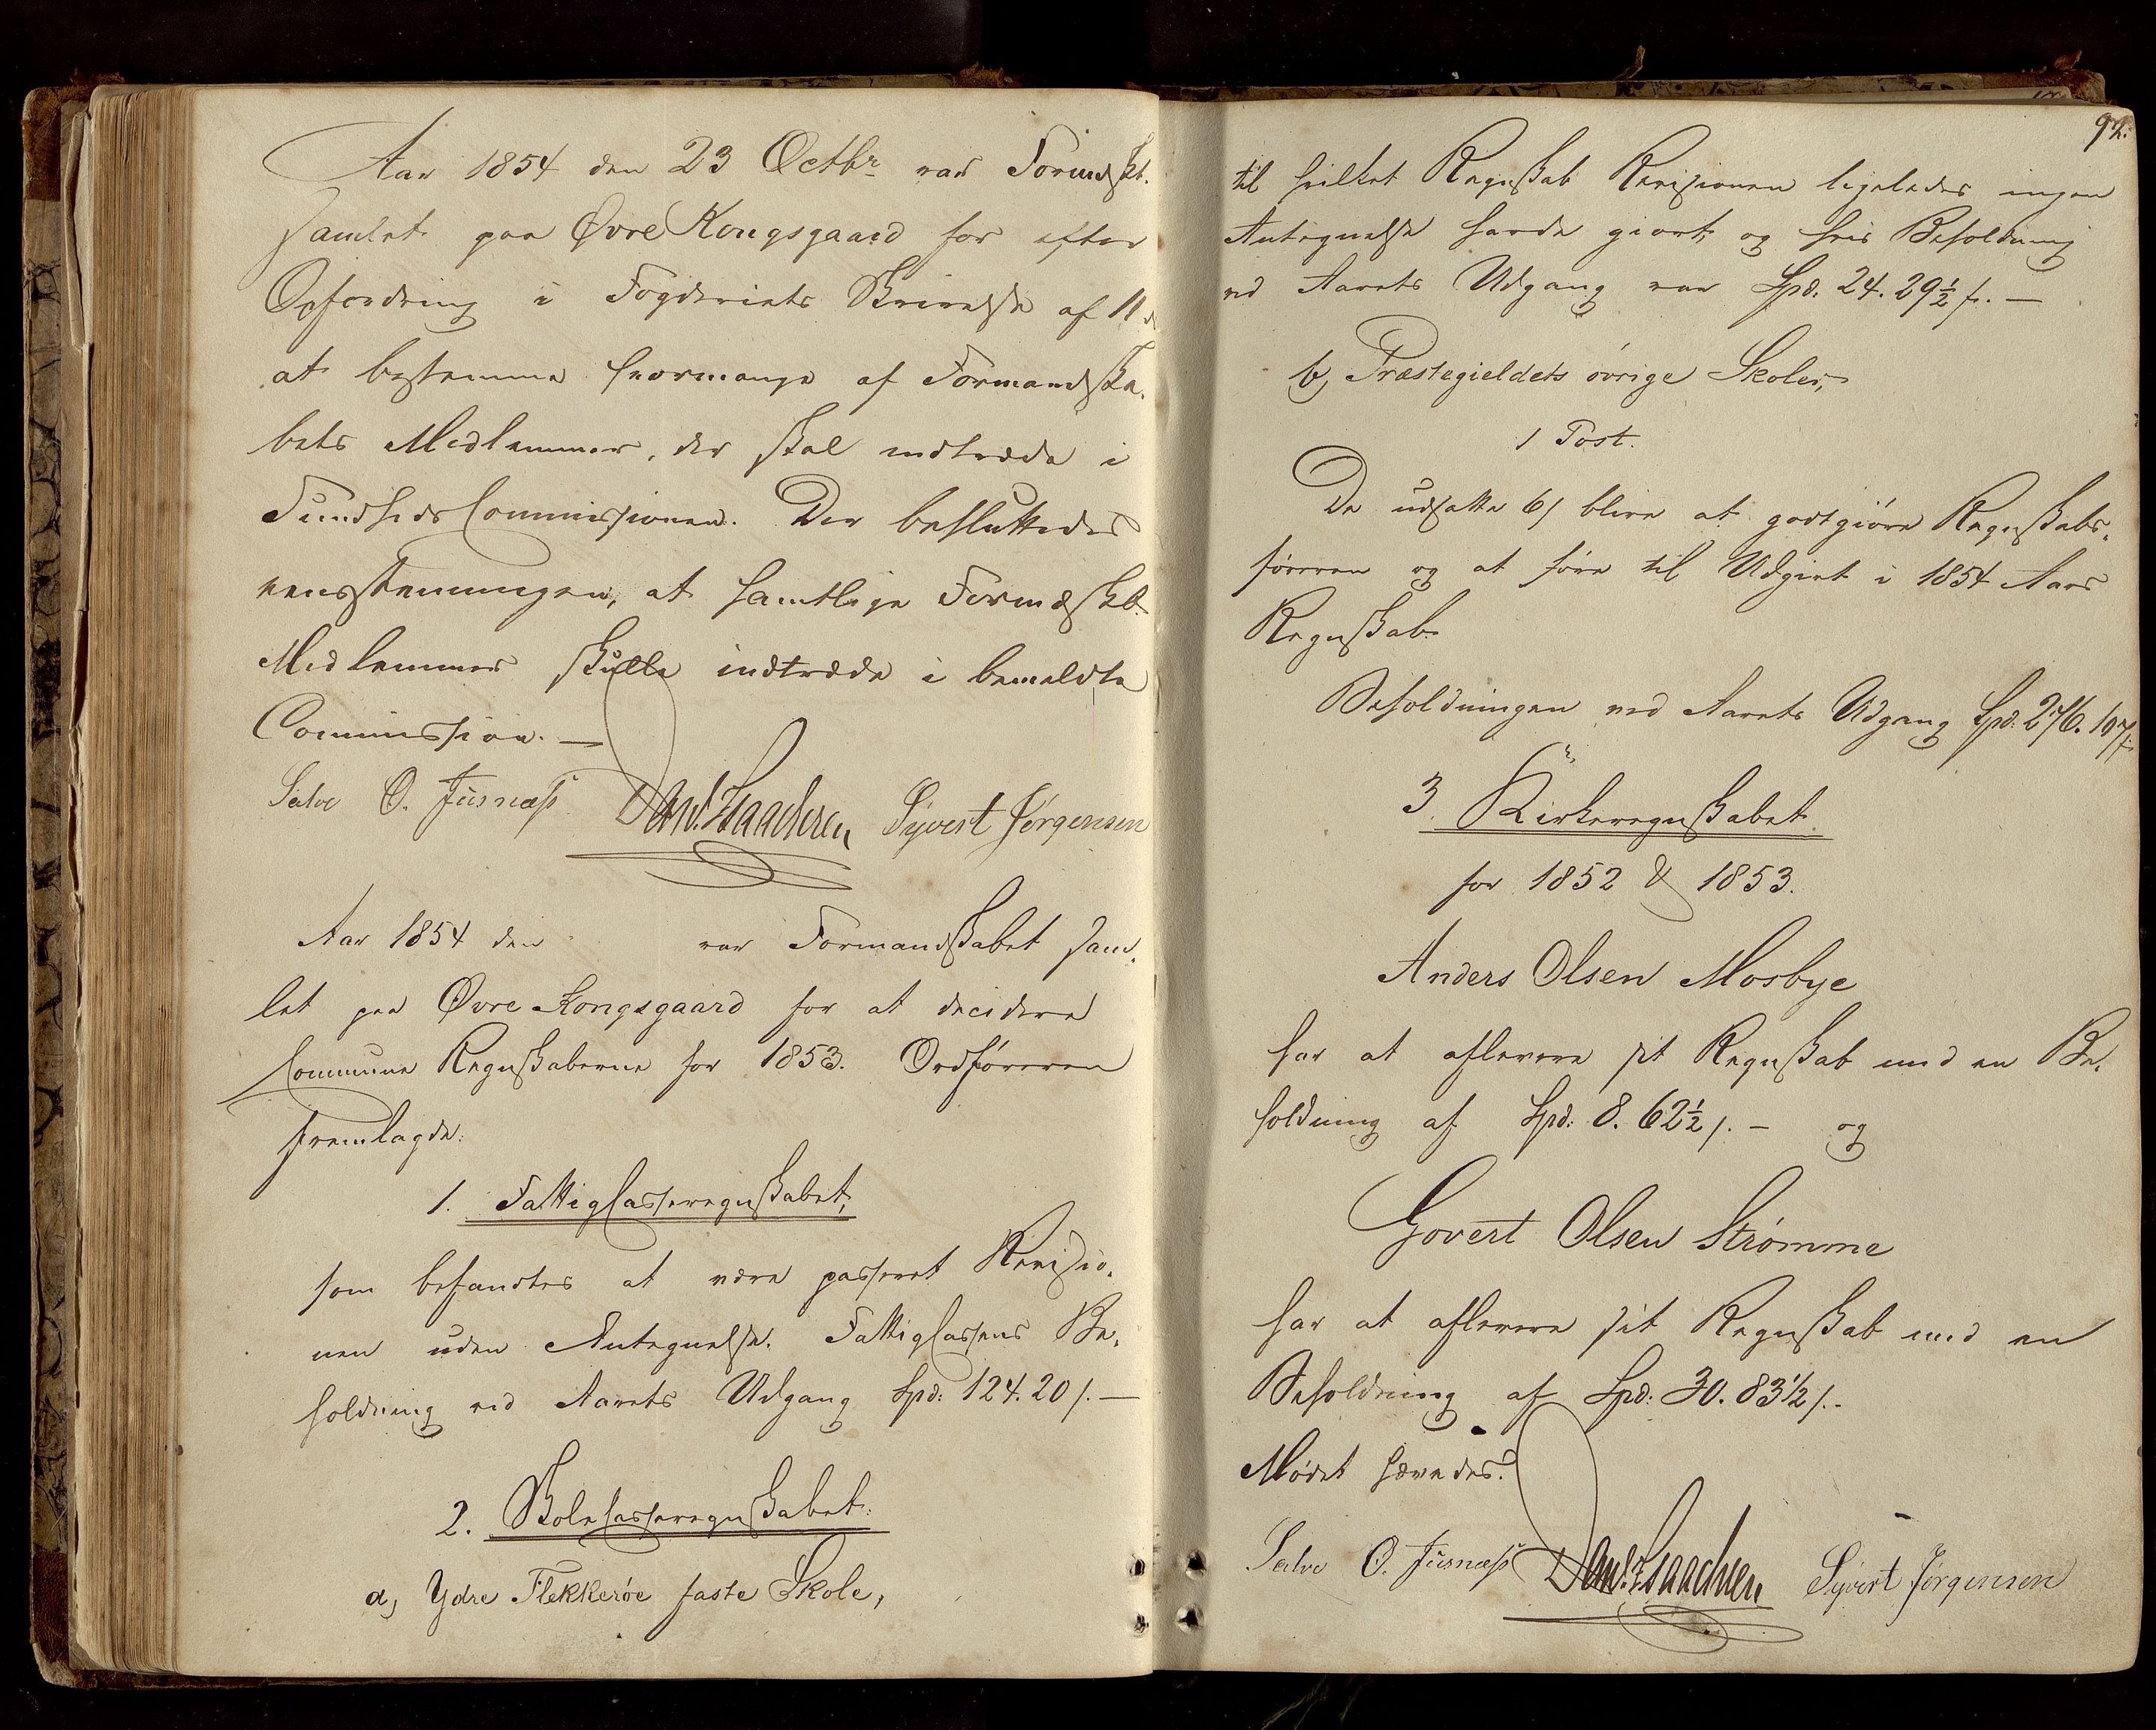 Aar 1854 den 23 Octbr var Formdskt.
samlet paa Øvre Kongsgaard for efter
Opfordring i Fogderiets Skrivelse af 11
at bestemme hvormange af Formandska-
bets Medlemmer, der skal indtræde i
Sundheds Commissionen. Der besluttedes
eensstemmigen, at samtlige Formdskb.
Medlemmer skulle indtræde i bemeldte
Commission. —
Salve O. Justnæs Dan. Isaachsen Syvert Jörgensen
Aar 1854 den var Formandskabet sam-
let paa Øvre Kongsgaard for at decidere
Commune Regnskaberne for 1853. Ordføreren
fremlagde:
1. Fattigcasseregnskabet,
som befandtes at være passeret Revisio-
nen uden Antegnelse. Fattigcassens Be-
holdning ved Aarets Udgang Spd: 124. 20 s. —
2. Skolecasseregnskabet:
a, Ydre Flekkeröe faste Skole,
92.
til hvilket Regnskab Revisionen ligeledes ingen
Antegnelse havde giort, og hvis Beholdning
ved Aarets Udgang var Spd. 24. 29½ s. —
b, Præstegieldets övrige Skoler,
1 Post.
De udsatte 6 s blive at godtgiöre Regnskabs-
föreren og at före til Udgivt i 1854 Aars
Regnskab.
Beholdningen ved Aarets Udgang Spd:
3. Kirkeregnskabet
for 1852 & 1853.
Anders Olsen Mosbye
har at aflevere sit Regnskab med en Be-
holdning af Spd: 8. 62½ s. — og
Govert Olsen Strømme
har at aflevere sit Regnskab med en
Beholdning af Spd: 30. 83½ s. -
Mødet hævedes.
Salve O. Justnæs Dan. Isaachsen Syvert Jörgensen